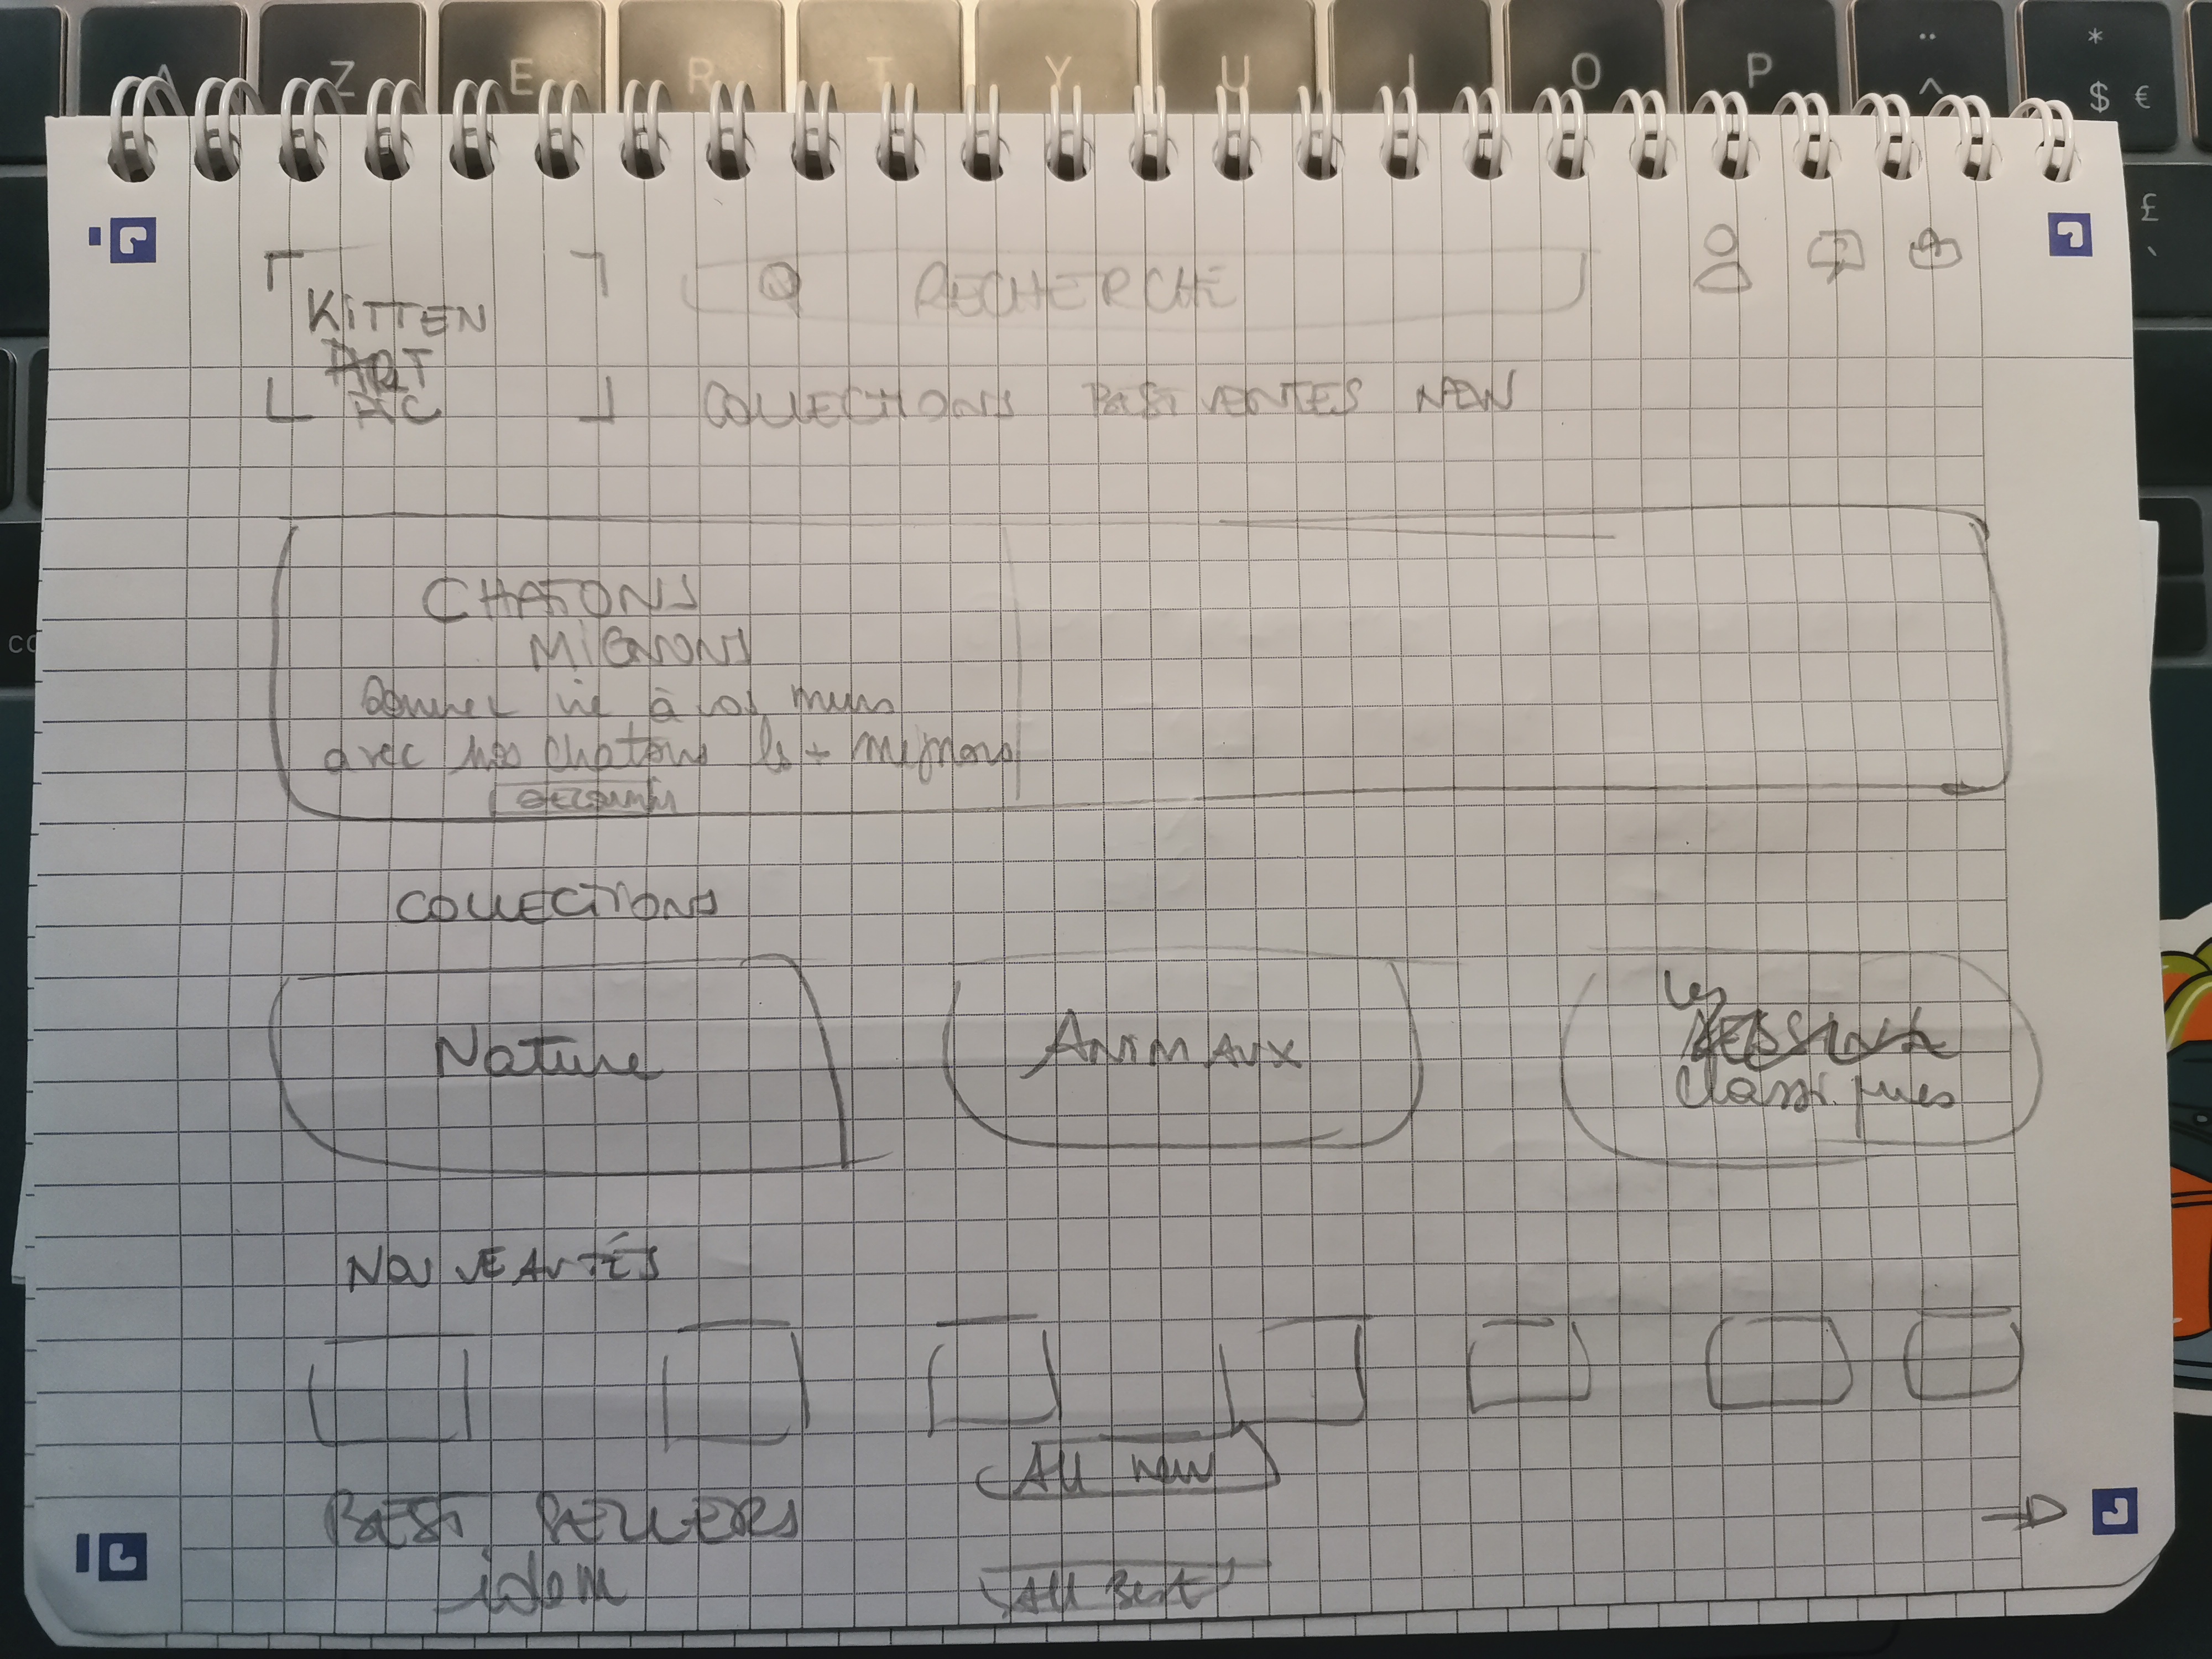 A Z E R T Y U I O P ¨ ^ * $ €
£
`
KITTEN
ART
RECHERCHE
COLLECTIONS BEST VENTES NEW
co
CHATONS
MIGNONS
Donner vie à vos murs
avec nos chatons ls + mignons
découvrir
COLLECTIONS
Nature
ANIMAUX
les
classiques
NOUVEAUTÉS
All new
BEST SELLERS
idem
All Best